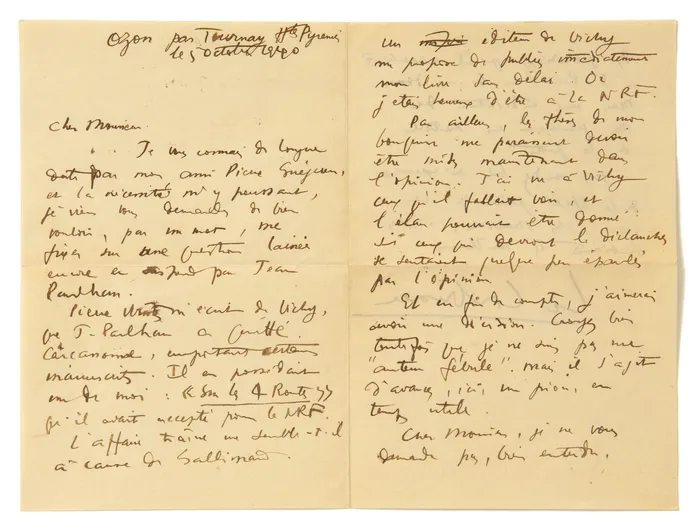 Ozon par Tournay Htes Pyrénées
le 5 Octobre 1940
Cher Monsieur.
Je vous connais de longue
date par mon ami Pierre
et la nécessité m'y poussant,
je viens vous demander de bien
vouloir, par un mot, me
fixer sur une question laissée
encore en par Jean
Paulhan.
Pierre m'écrit de Vichy,
que J. Paulhan a quitté
Carcassonne, emportant certains
manuscrits. Il en possédait
un de moi : « Sur les 4 Routes »
qu'il avait accepté pour la NRF.
L'affaire traîne me semble-t-il
à cause de Gallimard.
un éditeur de Vichy
me propose de publier immédiatement
mon livre sans délai. Or
j'étais heureux d'être à la NRF.
Par ailleurs, les thèses de mon
bouquin me paraissent devoir
être mises maintenant dans
l'opinion. J'ai vu à Vichy
ceux qu'il fallait voir, et
l'élan pourrait être donné
si ceux qui devront le déclancher
se sentaient quelque peu épaulés
par l'opinion
Et en fin de compte, j'aimerais
avoir une décision. Croyez bien
toutefois que je ne suis pas un
"auteur fébrile". mais il s'agit
d'avancer, ici, un pion, en
temps utile.
Cher Monsieur, je ne vous
demande pas, bien entendu,